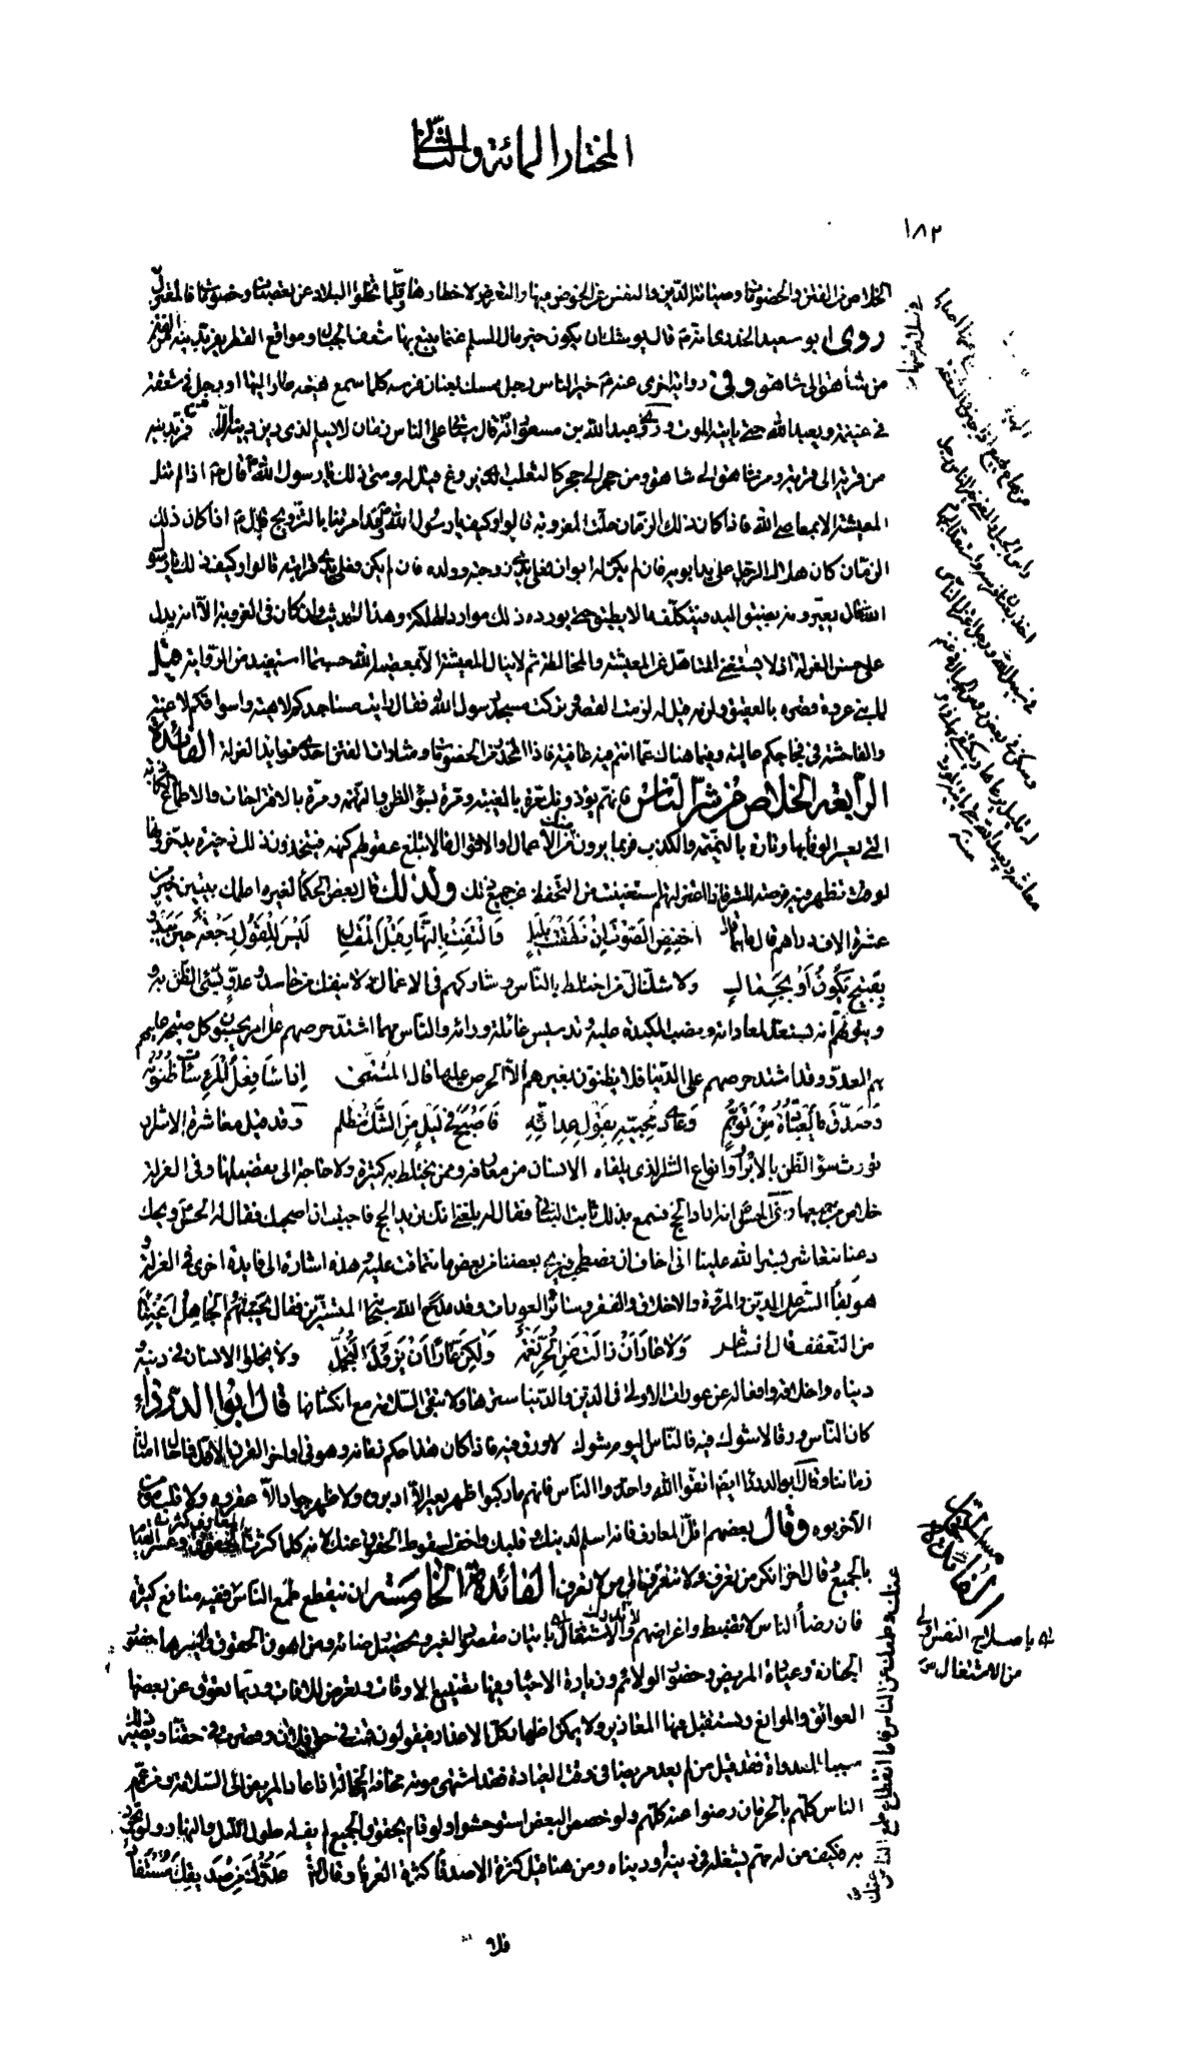 المختار المائة والثاني
١٨٢
الخلاص من الفتن والخصومات وصيانة الدين والنفس عن الخوض فيها والتعرض لاخطارها وقلما تخلوا البلاد عن تعصبات وخصومات فالمعتزل
روى ابو سعيد الخدري انه قال يوشك ان يكون خير مال المسلم غنما يتبع بها شعف الجبال ومواقع القطر يفر بدينه من الفتن
من شاهق الى شاهق وفي رواية اخرى عنه خير الناس رجل ممسك بعنان فرسه كلما سمع هيعة طار اليها او رجل في شعفة
في غنيمة ويعبد الله حتى ياتيه الموت وروى عبد الله بن مسعود انه قال سيأتي على الناس زمان لا يسلم لذي دين دينه الا من فر بدينه
من قرية الى قرية ومن شاهق الى شاهق ومن حجر الى حجر كالثعلب الذي يروغ قيل له ومتى ذلك يا رسول الله قال اذا لم تنل
المعيشة الا بمعاصي الله فاذا كان ذلك الزمان حلت العزوبة قالوا وكيف يا رسول الله وقد امرتنا بالتزويج قال اذا كان ذلك
الزمان كان هلاك الرجل على يد ابويه فان لم يكن له ابوان فعلى يدي زوجته وولده فان لم يكن فعلى يدي قرابته قالوا وكيف ذلك يا رسول
الله قال يعيرونه بضيق اليد فيتكلف ما لا يطيق حتى يورده ذلك موارد الهلكة وهذا الحديث وان كان في العزوبة الا انه يدل
على حسن العزلة اذ لا يستغني المتأهل عن المعيشة والمخالطة ثم لا ينال المعيشة الا بمعصية الله حسبما استفيد من الرواية قيل
لما بنى عروة قصره بالعقيق ولزمه قيل له لزمت القصر وتركت مسجد رسول الله فقال رايت مساجدكم لاهية واسواقكم لاغية
والفاحشة في فجاجكم عالية وفيما هناك عما انتم فيه عافية فاذا الحذر من الخصومات ومثارات الفتن احدى فوايد العزلة الفائدة
الرابعة الخلاص من شر الناس فانهم يؤذونك تارة بالغيبة ومرة بسوء الظن والتهمة ومرة بالاقتراحات والاطماع الكاذبة
التي يعسر الوفاء بها وتارة بالنميمة والكذب فربما يرون من الاعمال والاقوال ما لا تبلغ عقولهم كنهه فيتخذون ذلك ذخيرة يدخرونها
لوقت تظهر فيه فرصة للشر فاذا اعتزلتهم استغنيت من التحفظ عن جميع ذلك ولذلك قال بعض الحكماء لغيره اعلمك بيتين خير من
عشرة الاف درهم قال ما هما قال اخفض الصوت ان نطقت بليل والتفت بالنهار قبل المقال ليس للقول رجعة حين يبدو
بقبيح يكون او بجمال ولا شك ان من اختلط بالناس وشاركهم في الاعمال لا ينفك من حاسد وعدو يسيء الظن به
ويتوهم انه يستعد لمعاداته ونصب المكيدة عليه وتدسيس غائلة ورائه والناس مهما اشتد حرصهم على امر يحسبون كل صيحة عليهم
هم العدو وقد اشتد حرصهم على الدنيا فلا يظنون بغيرهم الا الحرص عليها قال المتنبي اذا ساء فعل المرء ساءت ظنونه
وصدق ما يعتاده من توهم وعادى محبيه بقول عداته فاصبح في ليل من الشك مظلم وقد قيل معاشرة الاشرار
تورث سوء الظن بالابرار وانواع الشر الذي يلقاه الانسان من معارفه وممن يختلط به كثيرة ولا حاجة الى تفصيلها وفي العزلة
خلاص من جميعها وروى الحسن انه اراد الحج فسمع بذلك ثابت البناني فقال له بلغني انك تريد الحج فاحببت ان اصحبك فقال له الحسن ويحك
دعنا نتعاشر بستر الله علينا اني اخاف ان نصطحب فيرى بعضنا من بعض ما نتماقت عليه وهذه اشارة الى فايدة اخرى في العزلة و
هو بقاء الستر على الدين والمروة والاخلاق والفقر وسائر العورات وقد مدح الله سبحانه المتسترين فقال يحسبهم الجاهل اغنياء
من التعفف قال الشاعر ولا عار ان زالت عن الحر نعمة ولكن عارا ان يزول التجمل ولا يخلوا الانسان في دينه و
دنياه واخلاقه وافعاله عن عورات الاولى في الدين والدنيا سترها ولا تبقى السلامة مع انكشافها قال ابو الدرداء
كان الناس ورقا لا شوك فيه فالناس اليوم شوك لا ورق فيه فاذا كان هذا حكم زمانه وهو في اواخر القرن الاول فما حال
زماننا وقال ابو الدرداء ايضا اتقوا الله واحذروا الناس فانهم ما ركبوا ظهر بعير الا ادبروه ولا ظهر جواد الا عقروه ولا قلب مؤمن
الا خربوه وقال بعضهم اقل المعارف فانه اسلم لدينك وقلبك واخف لسقوط الحقوق عنك لانه كلما كثرت المعارف كثرت الحقوق وعسر القيام
بالجميع وقال اخر انكر من تعرف ولا تتعرف الى من لا تعرف الفائدة الخامسة ان ينقطع طمع الناس ففيه منافع كثيرة
فان رضا الناس لا تنضبط واغراضهم لا تدرك والاشتغال باتيان مقصود الغير وتحصيل رضائه ومن اهون الحقوق وايسرها حضور
الجنازة وعيادة المريض وحضور الولائم وزيارة الاحباء وفيها تضييع الاوقات وتعرض للافات وربما تعوق عن بعضها
العوائق والموانع وتستقبل عنها المعاذير ولا يمكن اظهار كل الاعذار فيقولون قمت في حق فلان وقصرت في حقنا ويصير ذلك
سببا للعداوة فقد قيل من لم يعد مريضا في وقت العيادة فقد اشتهى موته مخافة الخجالة اذا عاد المريض الى السلامة ومن عم
الناس كلهم بالحرمان رضوا عنه كلهم ولو خصص البعض استوحشوا ولو قام بحقوق الجميع لم يفي له طول الليل والنهار ولو تجرد
به فكيف من له مهم يشغله في دينه ودنياه ومن هنا قيل كثرة الاصدقاء كثرة الغرماء وقال عدوك من صديقك مستفاد
الفائدة
باصلاح النفس اولى
من الاشتغال
عنك وطمعك عن الناس فاما انقطاع طمع الناس عنك
فلا